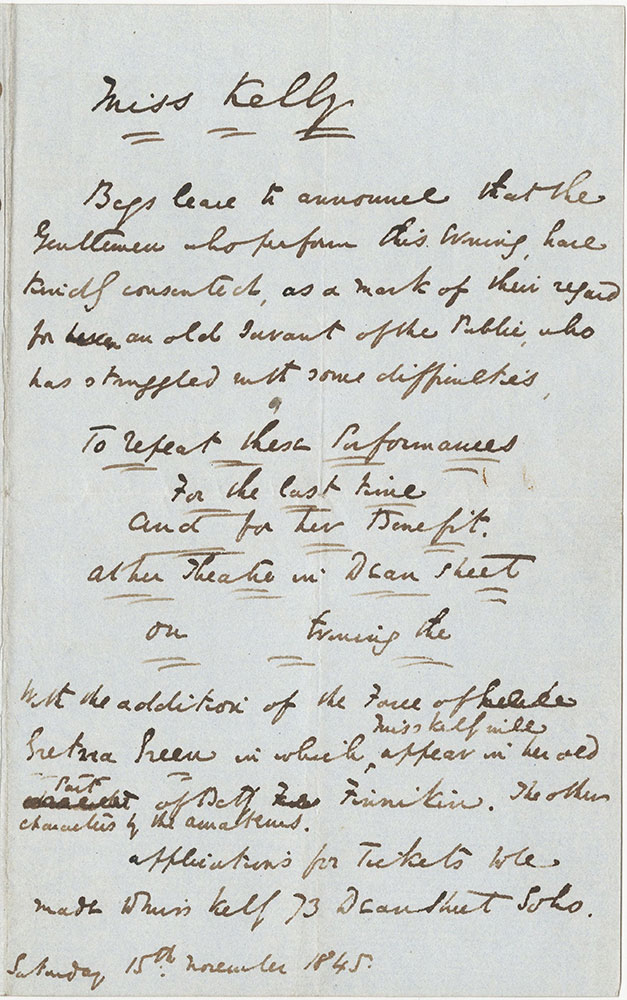 Miss Kelly
Begs leave to announce that the
Gentlemen who perform this Evening, have
kindly consented, as a mark of their regard
for an old Servant of the Public, who
has struggled with some difficulties,
To repeat these Performances
For the last time
and for her Benefit.
at her Theatre in Dean Street
on Evening the
With the addition of the Farce of
Miss Kelly will
Gretna Green in which, appear in her old
Part
of Betty Finnikin. The other
characters by the amateurs.
applications for Tickets to be
made to Miss Kelly 73 Dean Street Soho.
Saturday 15th. November 1845.